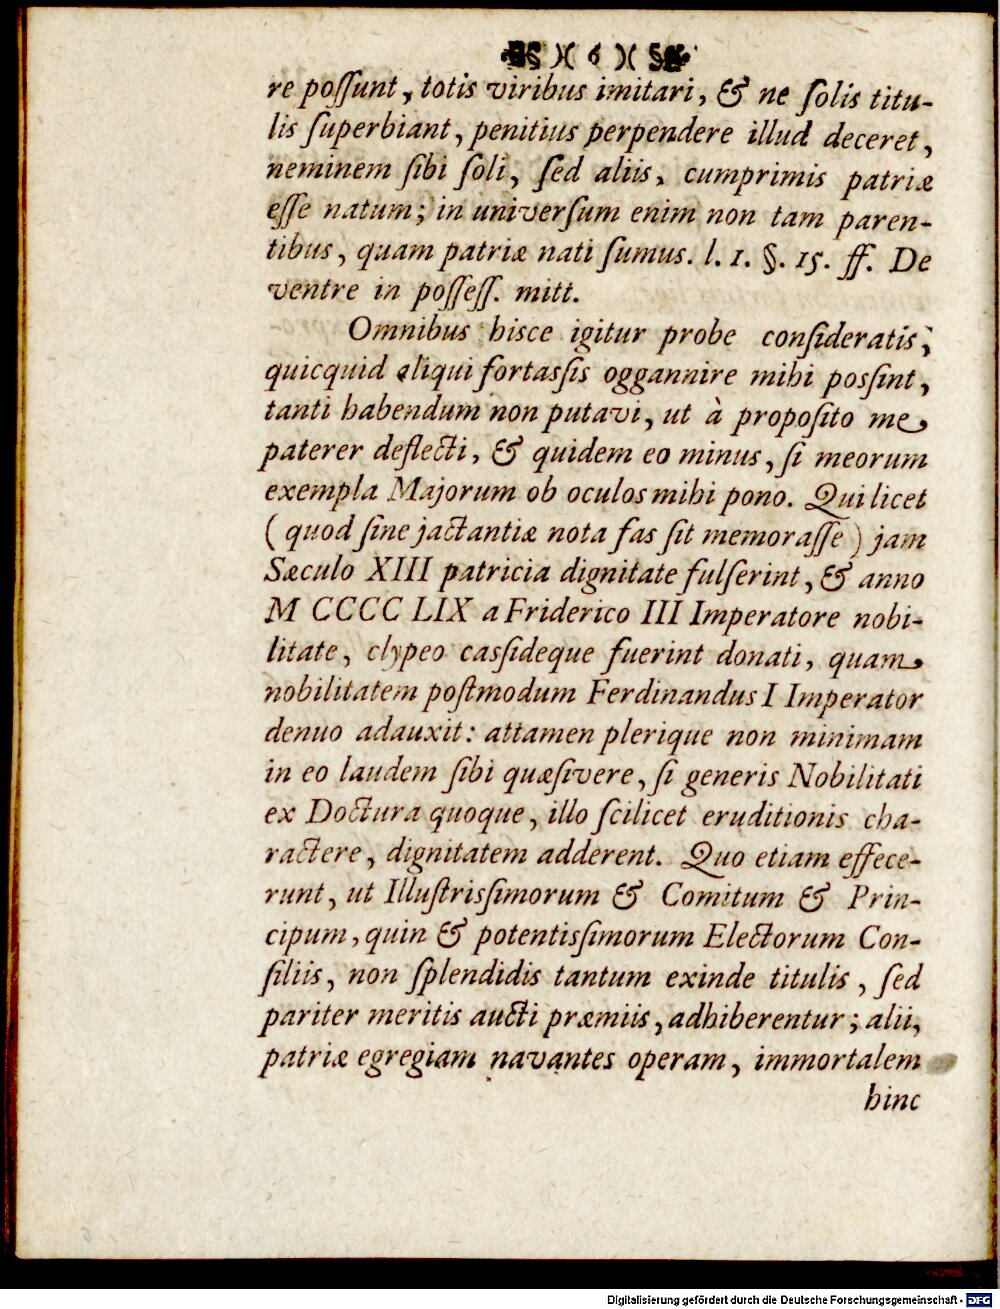 )( 6 )(
re poſſunt, totis viribus imitari, & ne ſolis titu-
lis ſuperbiant, penitius perpendere illud deceret,
neminem ſibi ſoli, ſed aliis, cumprimis patriæ
eſſe natum; in univerſum enim non tam paren-
tibus, quam patriæ nati ſumus. l. 1. §. 15. ff. De
ventre in poſſeſſ. mitt.
Omnibus hisce igitur probe conſideratis,
quicquid aliqui fortasſis oggannire mihi posſint,
tanti habendum non putavi, ut à propoſito me
paterer deflecti, & quidem eo minus, ſi meorum
exempla Majorum ob oculos mihi pono. Qui licet
( quod ſine jactantiæ nota fas ſit memoraſſe ) jam
Sæculo XIII patricia dignitate fulſerint, & anno
M CCCC LIX a Friderico III Imperatore nobi-
litate, clypeo casſideque fuerint donati, quam
nobilitatem poſtmodum Ferdinandus I Imperator
denuo adauxit: attamen plerique non minimam
in eo laudem ſibi quæſivere, ſi generis Nobilitati
ex Doctura quoque, illo ſcilicet eruditionis cha-
ractere, dignitatem adderent. Quo etiam effece-
runt, ut Illuſtrisſimorum & Comitum & Prin-
cipum, quin & potentisſimorum Electorum Con-
ſiliis, non ſplendidis tantum exinde titulis, ſed
pariter meritis aucti præmiis, adhiberentur; alii,
patriæ egregiam navantes operam, immortalem
hinc
Digitalisierung gefördert durch die Deutsche Forschungsgemeinschaft - DFG